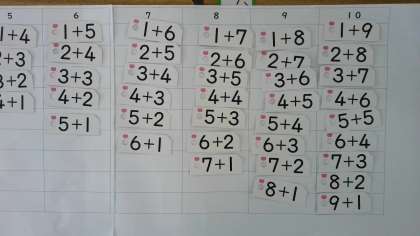 5 6 7 8 9 10
1+4 1+5 1+6 1+7 1+8 1+9
2+3 2+4 2+5 2+6 2+7 2+8
3+2 3+3 3+4 3+5 3+6 3+7
4+1 4+2 4+3 4+4 4+5 4+6
5+1 5+2 5+3 5+4 5+5
6+1 6+2 6+3 6+4
7+1 7+2 7+3
8+1 8+2
9+1